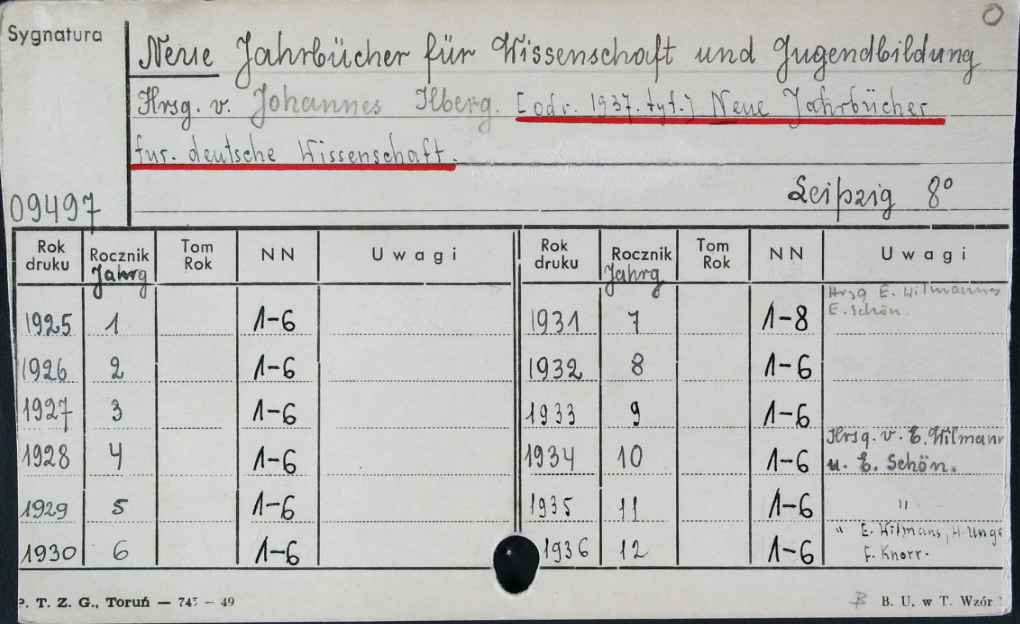 Sygnatura
Neue Jahrbücher für Wissenschaft und Jugendbildung
Hrsg. v. Johannes Ilberg. [odr. 1937. tyt.] Neue Jahrbücher
fur. deutsche Wissenschaft.
Leipzig 8°
09497
Rok druku Rocznik Jahrg Tom Rok NN Uwagi Rok druku Rocznik Jahrg Tom Rok NN Uwagi
Hrsg E. Wilmannes
1925 1 1-6 1931 7 1-8 E. Schön.
1926 2 1-6 1932 8 1-6
1927 3 1-6 1933 9 1-6
Hrsg. v. E. Wilmann
1928 4 1-6 1934 10 1-6 u. E. Schön.
1929 5 1-6 1935 11 1-6 "
" E. Wilmans, H. Ungs
1930 6 1-6 1936 12 1-6 F. Knorr.
P. T. Z. G., Toruń — 745 — 49 B. U. w T. Wzór